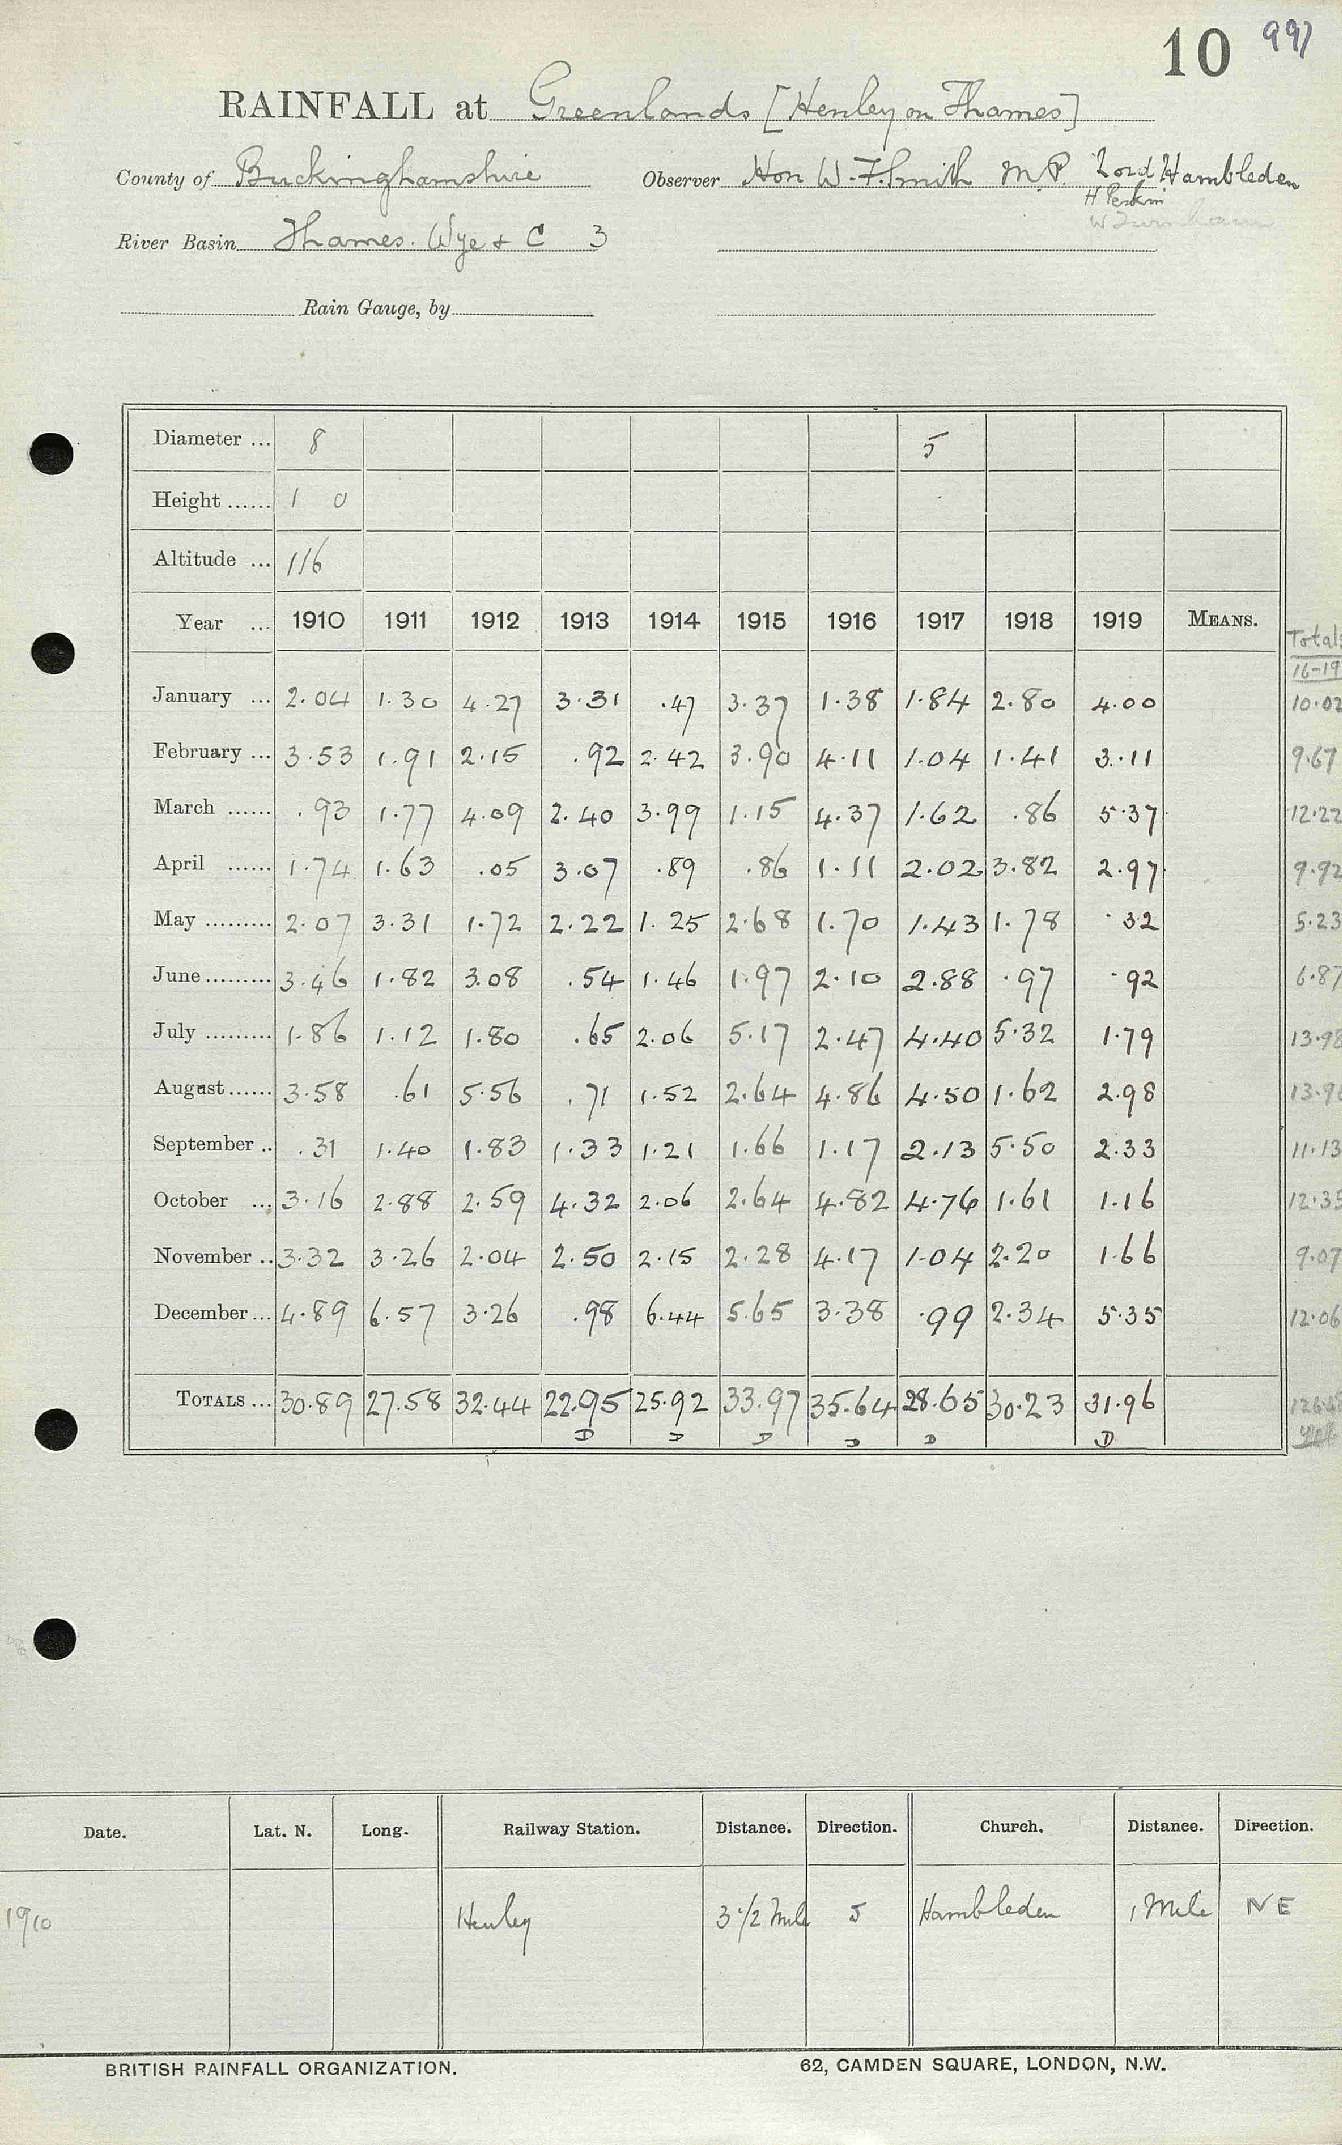 10 997
RAINFALL at Greenlands [Henley on Thames]
County of Buckinghamshire Observer Hon W. F. Smith M.P. Lord Hambleden
H Perkin
River Basin Thames. Wye & C 3
Rain Gauge, by
Diameter ... 8 5
Height ...... 1 0
Altitude ... 116
Year ... 1910 1911 1912 1913 1914 1915 1916 1917 1918 1919 MEANS. Totals
16-19
January ... 2.04 1.30 4.27 3.31 .47 3.37 1.38 1.84 2.80 4.00 10.02
February ... 3.53 1.91 2.15 .92 2.42 3.90 4.11 1.04 1.41 3.11 9.67
March ...... .93 1.77 4.09 2.40 3.99 1.15 4.37 1.62 .86 5.37 12.22
April ...... 1.74 1.63 .05 3.07 .89 .86 1.11 2.02 3.82 2.97 9.92
May ......... 2.07 3.31 1.72 2.22 1.25 2.68 1.70 1.43 1.78 .32 5.23
June ......... 3.46 1.82 3.08 .54 1.46 1.97 2.10 2.88 .97 .92 6.87
July ......... 1.86 1.12 1.80 .65 2.06 5.17 2.47 4.40 5.32 1.79 13.98
August ...... 3.58 .61 5.56 .71 1.52 2.64 4.86 4.50 1.62 2.98 13.96
September .. .31 1.40 1.83 1.33 1.21 1.66 1.17 2.13 5.50 2.33 11.13
October ... 3.16 2.88 2.59 4.32 2.06 2.64 4.82 4.76 1.61 1.16 12.35
November .. 3.32 3.26 2.04 2.50 2.15 2.28 4.17 1.04 2.20 1.66 9.07
December ... 4.89 6.57 3.26 .98 6.44 5.65 3.38 .99 2.34 5.35 12.06
TOTALS ... 30.89 27.58 32.44 22.95 25.92 33.97 35.64 28.65 30.23 31.96
D D D D D D
Date. Lat. N. Long. Railway Station. Distance. Direction. Church. Distance. Direction.
1910 Henley 3 1/2 Mile S Hambleden 1 Mile NE
BRITISH RAINFALL ORGANIZATION. 62, CAMDEN SQUARE, LONDON, N.W.